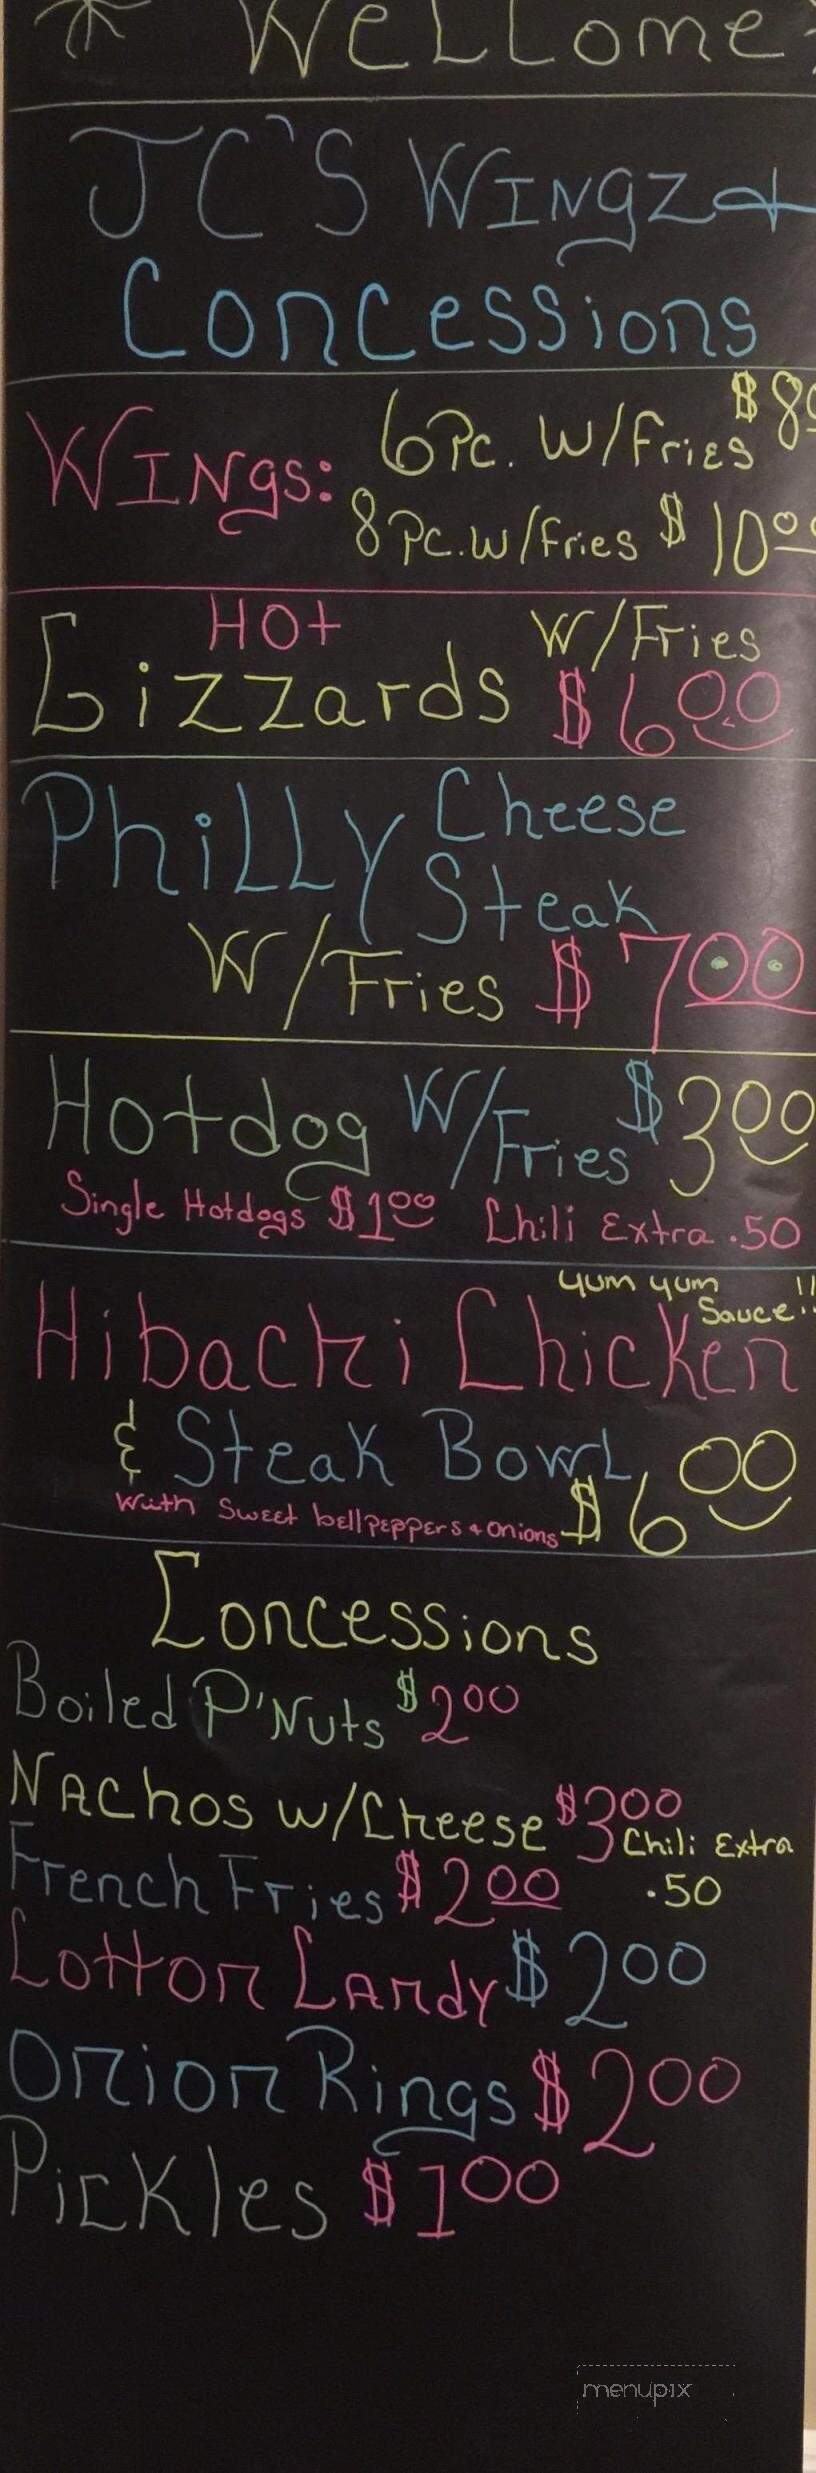 Welcome
JC'S Wingz &
Concessions
Wings: 6 Pc. W/Fries $8
8 Pc. W/Fries $10.00
Hot Gizzards W/Fries $6.00
Philly Cheese
Steak
W/Fries $7.00
Hotdog W/Fries $3.00
Single Hotdogs $1.00 Chili Extra .50
yum yum
Sauce!!
Hibachi Chicken
& Steak Bowl $6.00
With Sweet bellpeppers & onions
Concessions
Boiled P'Nuts $2.00
Nachos w/Cheese $3.00
Chili Extra
.50
French Fries $2.00
Cotton Candy $2.00
Onion Rings $2.00
Pickles $1.00
menupix